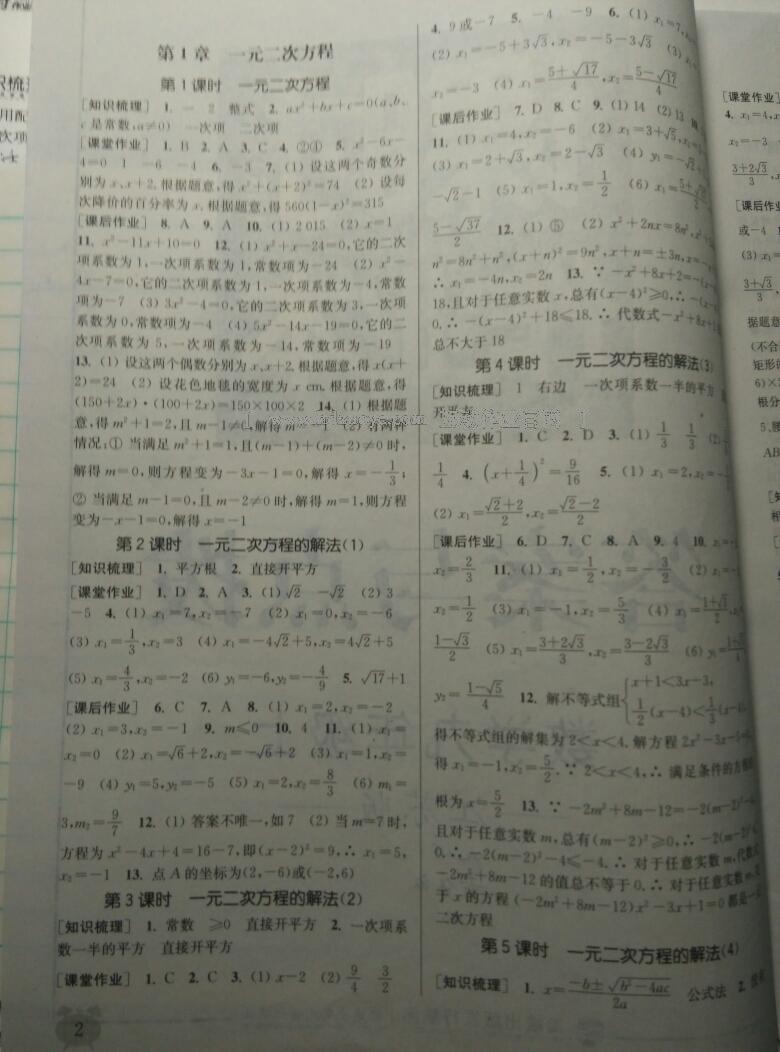 第1章 一元二次方程
第1课时 一元二次方程
[知识梳理] 1. 一 2 整式 2. ax²+bx+c=0(a、b、
c是常数,a≠0) 一次项 二次项
[课堂作业] 1. B 2. A 3. C 4. ②④ 5. x²-6x-
4=0 1 -6 -4 6. -3 7. (1) 设这两个奇数分
别为x、x+2.根据题意,得x²+(x+2)²=74 (2) 设每
次降价的百分率为x.根据题意,得560(1-x)²=315
[课后作业] 8. A 9. A 10. (1) 2 015 (2) x=1
11. x²-11x+10=0 12. (1) x²+x-24=0,它的二次
项系数为1,一次项系数为1,常数项为-24 (2) x²-
4x-7=0,它的二次项系数为1,一次项系数为-4,常数
项为-7 (3) 3x²-4=0,它的二次项系数为3,一次项
系数为0,常数项为-4 (4) 5x²-14x-19=0,它的二
次项系数为5,一次项系数为-14,常数项为-19
13. (1) 设这两个偶数分别为x、x+2.根据题意,得x(x+
2)=24 (2) 设花色地毯的宽度为x cm.根据题意,得
(150+2x)·(100+2x)=150×100×2 14. (1) 根据题
意,得m²+1=2,且m-1≠0.解得m=-1 (2) 有两种
情况:① 当满足m²+1=1,且(m-1)+(m-2)≠0时,
解得m=0,则方程变为-3x-1=0,解得x=-1/3;
② 当满足m-1=0,且m-2≠0时,解得m=1,则方程
变为-x-1=0,解得x=-1
第2课时 一元二次方程的解法(1)
[知识梳理] 1. 平方根 2. 直接开平方
[课堂作业] 1. D 2. A 3. (1) √2 -√2 (2) 3
-5 4. (1) x₁=7,x₂=-7 (2) x₁=0,x₂=-6
(3) x₁=1/3,x₂=3 (4) x₁=-4√2+5,x₂=4√2+5
(5) x₁=4/3,x₂=-2 (6) y₁=-6,y₂=-4/9 5. √17+1
[课后作业] 6. C 7. A 8. (1) x₁=2,x₂=-2
(2) x₁=3,x₂=-1 9. m≤0 10. 4 11. (1) x₁=
x₂=0 (2) x₁=√6+2,x₂=-√6+2 (3) x₁=1,x₂=
-9 (4) y₁=5,y₂=-5 (5) x₁=2,x₂=8/3 (6) m₁=
3,m₂=9/7 12. (1) 答案不唯一,如7 (2) 当m=7时,
方程为x²-4x+4=16-7,即(x-2)²=9,∴ x₁=5,
x₂=-1 13. 点A的坐标为(2,-6)或(-2,6)
第3课时 一元二次方程的解法(2)
[知识梳理] 1. 常数 ≥0 直接开平方 2. 一次项系
数一半的平方 直接开平方
[课堂作业] 1. C 2. C 3. (1) x-2 (2) 9/4 3/2
2
4. 9或-7 5. -4 -9 6. (1) x₁=7,
(2) x₁=-5+3√3,x₂=-5-3√3 (3)
x₂=-3 (4) x₁=(5+√17)/4,x₂=(5-√17)/4
[课后作业] 7. D 8. C 9. (1) 14 (2) 13
11. (1) x₁=4,x₂=-6 (2) x₁=3+√5,
(3) x₁=2+√3,x₂=2-√3 (4) y₁=-√2
-√2-1 (5) x₁=1,x₂=1/2 (6) x₁=
(5-√37)/2 12. (1) ⑤ (2) x²+2nx=8n²,
n²=8n²+n²,(x+n)²=9n²,x+n=±3n,
∴ x₁=-4n,x₂=2n 13. ∵ -x²+8x+2=
18,且对于任意实数x,总有(x-4)²≥0,∴
0.∴ -(x-4)²+18≤18.∴ 代数式-x²+8x+
总不大于18
第4课时 一元二次方程的解法(3)
[知识梳理] 1 右边 一次项系数一半的平方
开平方
[课堂作业] 1. C 2. D 3. (1) 1/3 1/3 (2)
1/4 4. (x+1/4)²=9/16 5. (1) x₁=2,x₂=
(2) x₁=(√2+2)/2,x₂=(√2-2)/2
[课后作业] 6. D 7. C 8. A 9. 4 10.
x₂=2/3 11. (1) x₁=1/2,x₂=-3/2 (2)
x₂=1/2 (3) x₁=-1,x₂=5/3 (4) x₁=
(1-√3)/2 (5) x₁=(3+2√3)/3,x₂=(3-2√3)/3 (6) y₁=
y₂=(1-√5)/4 12. 解不等式组{x+1<3x-3,
1/2(x-4)<1/3(x-
得不等式组的解集为2<x<4.解方程2x²-3x-
得x₁=-1,x₂=5/2.∵ 2<x<4,∴ 满足条件的方程的
根为x=5/2 13. ∵ -2m²+8m-12=-2(m-2)²-
且对于任意实数m,总有(m-2)²≥0,∴ -2(m-2)²
0.∴ -2(m-2)²-4≤-4.∴ 对于任意实数m,代数式
-2m²+8m-12的值总不等于0.∴ 对于任意实数m,关
于x的方程(-2m²+8m-12)x²-3x+1=0都是一元
二次方程
第5课时 一元二次方程的解法(4)
[知识梳理] 1. x=(-b±√(b²-4ac))/2a 公式法 2.
[课堂作业]
4. x₁=4,
x₂=-3
[课后作业
或-4
(3) x₁=
据题意
(不合
矩形
6)×
根分
5.
AB